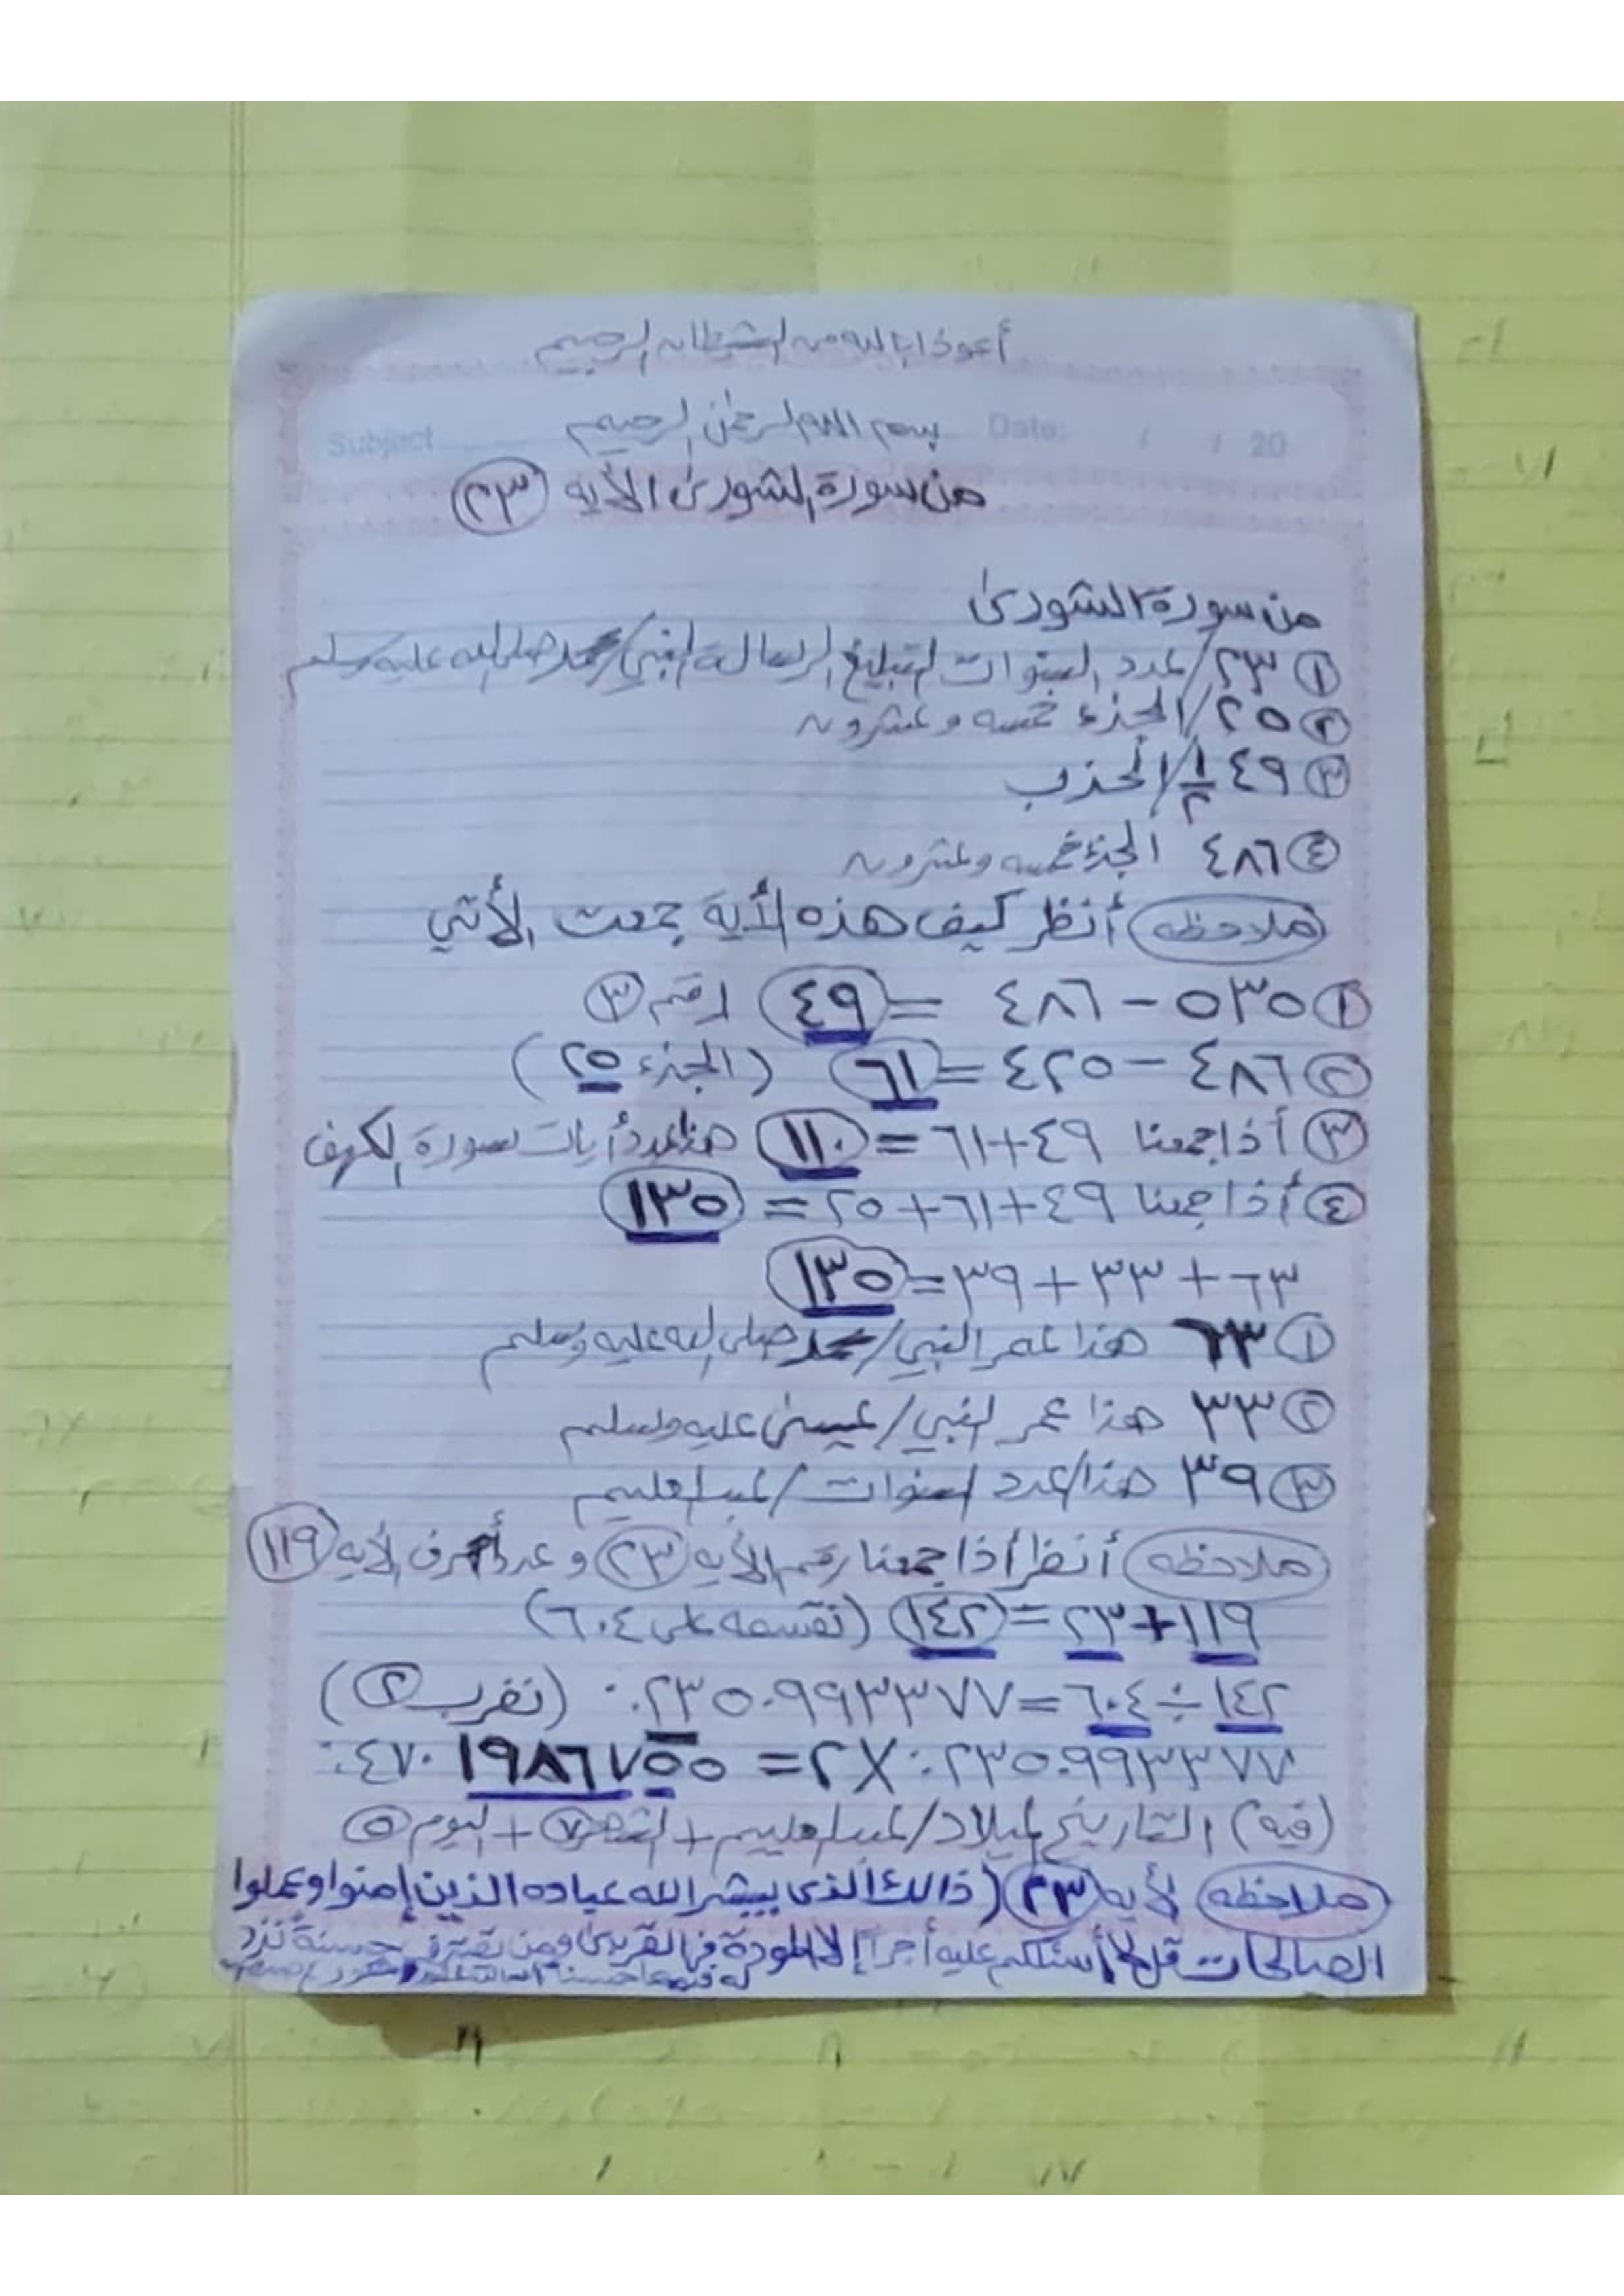 أعوذ بالله من الشيطان الرجيم
بسم الله الرحمن الرحيم
Subject Date: / / 20
من سورة الشورى الأيه (٢٣)
من سورة الشورى
١ ٢٣/ عدد السنوات لتبليغ الرسالة النبي/ محمد صلى الله عليه وسلم
٢ ٢٥/ الجزء خمسه وعشرون
٣ ٤٩ ١/٢/ الحزب
٤ ٤٨٦ الجزء خمسه وعشرون
ملاحظه أنظر كيف هذه الأية جمعت الأتي
١ ٥٣٥ − ٤٨٦ = ٤٩ رقم ٣
٢ ٤٨٦ − ٤٢٥ = ٦١ (الجزء ٢٥)
٣ أذا جمعنا ٤٩+٦١ = ١١٠ هذا عدد أيات سورة الكهف
٤ أذا جمعنا ٤٩+٦١+٢٥ = ١٣٥
٦٣ + ٣٣ + ٣٩ = ١٣٥
١ ٦٣ هذا عمر النبي/ محمد صلى الله عليه وسلم
٢ ٣٣ هذا عمر النبي/ عيسى عليه وسلم
٣ ٣٩ هذا/ عدد سنوات/
ملاحظه أنظر أذا جمعنا رقم الأيه ٢٣ و عدد أحرف الأيه ١١٩
١١٩+٢٣ = ١٤٢ (نقسمه على ٦٠٤)
١٤٢ ÷ ٦٠٤ = ٠.٢٣٥٠٩٩٣٣٧٧ (نضرب ٢)
٠.٢٣٥٠٩٩٣٣٧٧ X ٢ = ٠.٤٧٠١٩٨٦٧٥٥
(فيه) التاريخ لميلاد/ + الشهر ٧ + اليوم ٥
ملاحظه لأيه ٢٣ (ذالك الذى يبشر الله عباده الذين إمنوا وعملوا
الصالحات قل لا أسئلكم عليه أجرا إلا المودة في القربى ومن يقترف حسنة نزد
له فيها حسنا إن الله غفور شكور